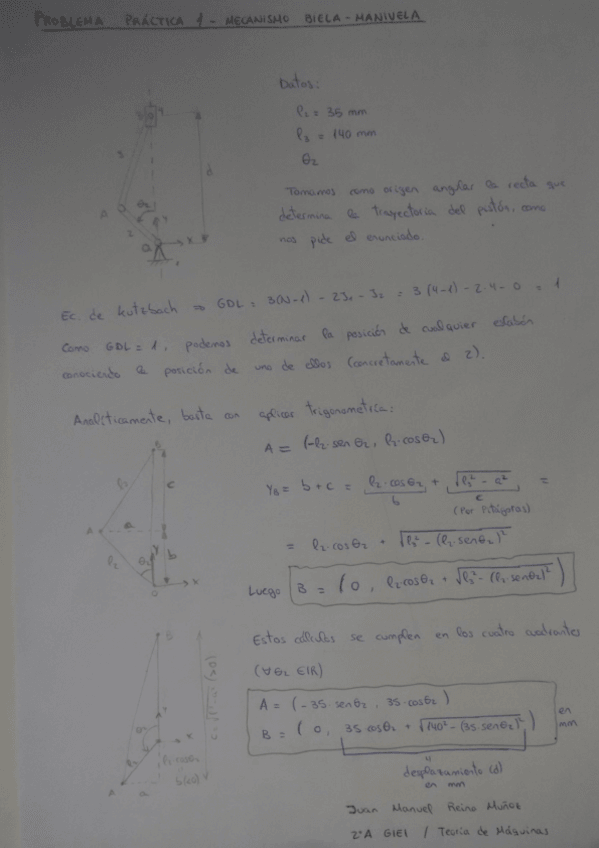 PROBLEMA PRÁCTICA 1 - MECANISMO BIELA-MANIVELA
Datos:
l₂ = 35 mm
l₃ = 140 mm
θ₂
Tomamos como origen angular la recta que
determina la trayectoria del pistón, como
nos pide el enunciado.
A
3
θ₂
2
O
x
y
d
Ec. de Kutzbach ⇒ GDL = 3(N-1) - 2J₁ - J₂ = 3(4-1) - 2·4 - 0 = 1
Como GDL = 1, podemos determinar la posición de cualquier eslabón
conociendo la posición de uno de ellos (concretamente el 2).
Analíticamente, basta con aplicar trigonometría:
A = (-l₂·sen θ₂, l₂·cosθ₂)
B
l₃
c
A
a
l₂
θ₂
b
O
x
y_B = b + c = l₂·cosθ₂ + √(l₃² - a²) =
b
c
(Por Pitágoras)
= l₂·cosθ₂ + √(l₃² - (l₂·senθ₂)²)
Luego B = (0, l₂cosθ₂ + √(l₃² - (l₂·senθ₂)²))
Estos cálculos se cumplen en los cuatro cuadrantes
(∀θ₂ ∈ ℝ)
B
x
A
a
A = (-35 senθ₂, 35·cosθ₂)
B = (0, 35 cosθ₂ + √(140² - (35·senθ₂)²))
en
mm
desplazamiento (d)
en mm
Juan Manuel Reino Muñoz
2ºA GIEI / Teoría de Máquinas